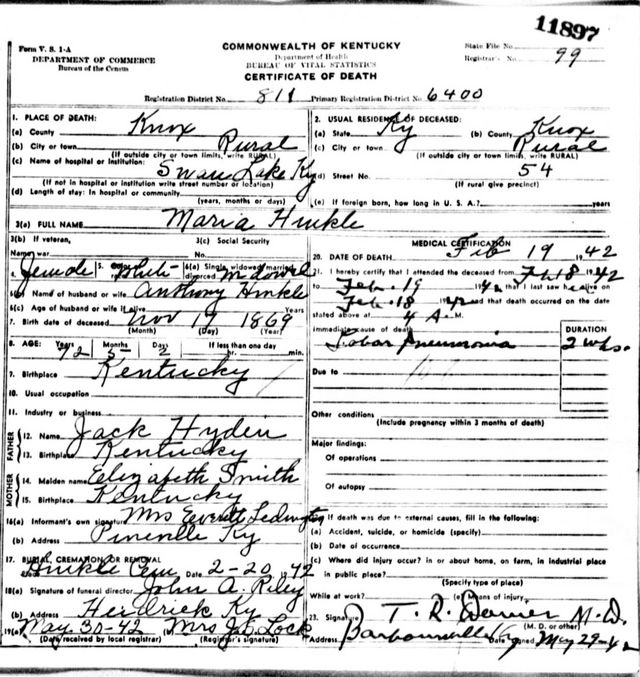 11897
Form V. S. 1-A
DEPARTMENT OF COMMERCE
Bureau of the Census
COMMONWEALTH OF KENTUCKY
Department of Health
BUREAU OF VITAL STATISTICS
CERTIFICATE OF DEATH
State File No.
Registrar's No. 99
Registration District No. 811 Primary Registration District No. 6400
1. PLACE OF DEATH:
(a) County Knox
(b) City or town Rural
(If outside city or town limits, write RURAL)
(c) Name of hospital or institution: Swan Lake Ky
(If not in hospital or institution write street number or location)
(d) Length of stay: In hospital or community
(years, months or days)
2. USUAL RESIDENCE OF DECEASED:
(a) State Ky (b) County Knox
(c) City or town Rural
(If outside city or town limits, write RURAL)
(d) Street No. 54
(If rural give precinct)
(e) If foreign born, how long in U. S. A.? years
3(a) FULL NAME Maria Hinkle
3(b) If veteran,
Name war
3(c) Social Security
No.
4. Female 5. White 6(a) Single, widowed, married, divorced
6(b) Name of husband or wife Anthony Hinkle
6(c) Age of husband or wife if alive
7. Birth date of deceased Nov 17 1869
(Month) (Day) (Year)
8. AGE: Years 72 Months Days 2 If less than one day
hr. min.
9. Birthplace Kentucky
10. Usual occupation
11. Industry or business
FATHER
12. Name Jack Hyden
13. Birthplace Kentucky
MOTHER
14. Maiden name Elizabeth Smith
15. Birthplace Kentucky
16(a) Informant's own signature Mrs Everette Ledington
(b) Address Pineville Ky
17. BURIAL, CREMATION OR REMOVAL
Hinkle Cem 2-20 1942
18(a) Signature of funeral director John A. Riley
(b) Address Heidrick Ky
19(a) May 30-42 (b) Mrs J. E. Lock
(Date received by local registrar) (Registrar's signature)
MEDICAL CERTIFICATION
20. DATE OF DEATH Feb 19 1942
21. I hereby certify that I attended the deceased from Feb 18 1942
to Feb. 19 1942 that I last saw her alive on
Feb. 18 1942 and that death occurred on the date
stated above at 4 A. M.
Immediate cause of death DURATION
Lobar Pneumonia 2 wks.
Due to
Other conditions
(Include pregnancy within 3 months of death)
Major findings:
Of operations
Of autopsy
22. If death was due to external causes, fill in the following:
(a) Accident, suicide, or homicide (specify)
(b) Date of occurrence
(c) Where did injury occur? in or about home, on farm, in industrial place
in public place?
(Specify type of place)
While at work? (e) Means of injury
23. Signature T. R. M. D.
(M. D. or other)
Address Barbourville Ky Date signed May 29-42